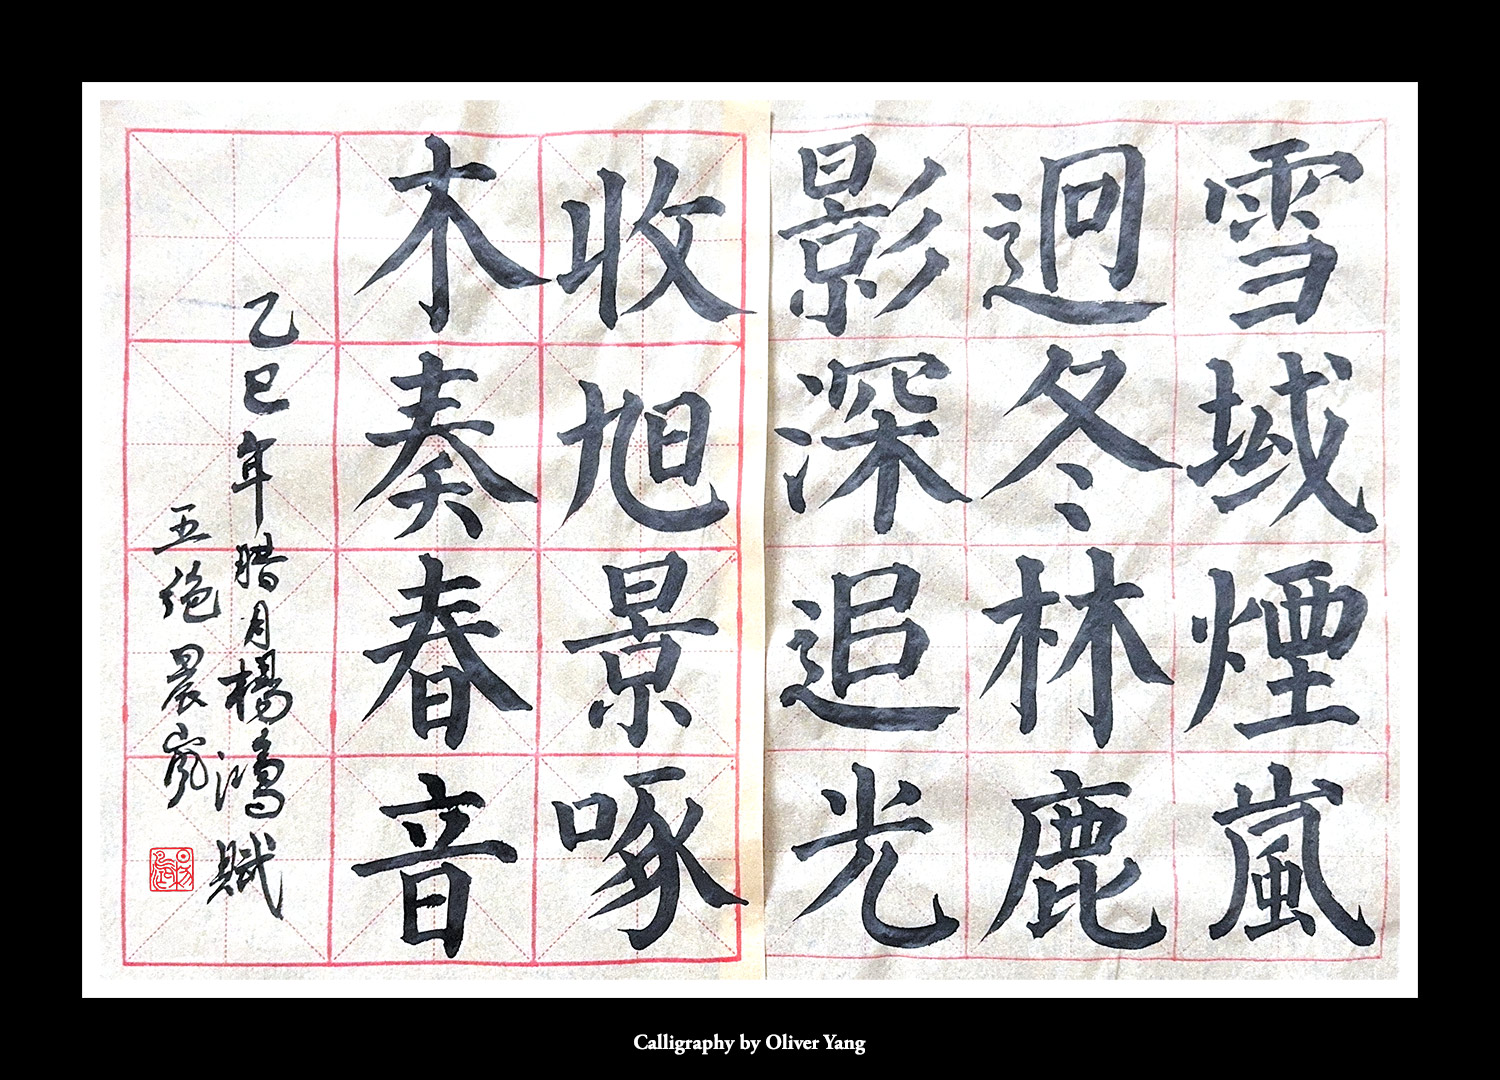 雪域煙嵐
迥冬林鹿
影深追光
收旭景啄
木奏春音
乙巳年腊月楊鴻賦
五绝晨嵐
Calligraphy by Oliver Yang